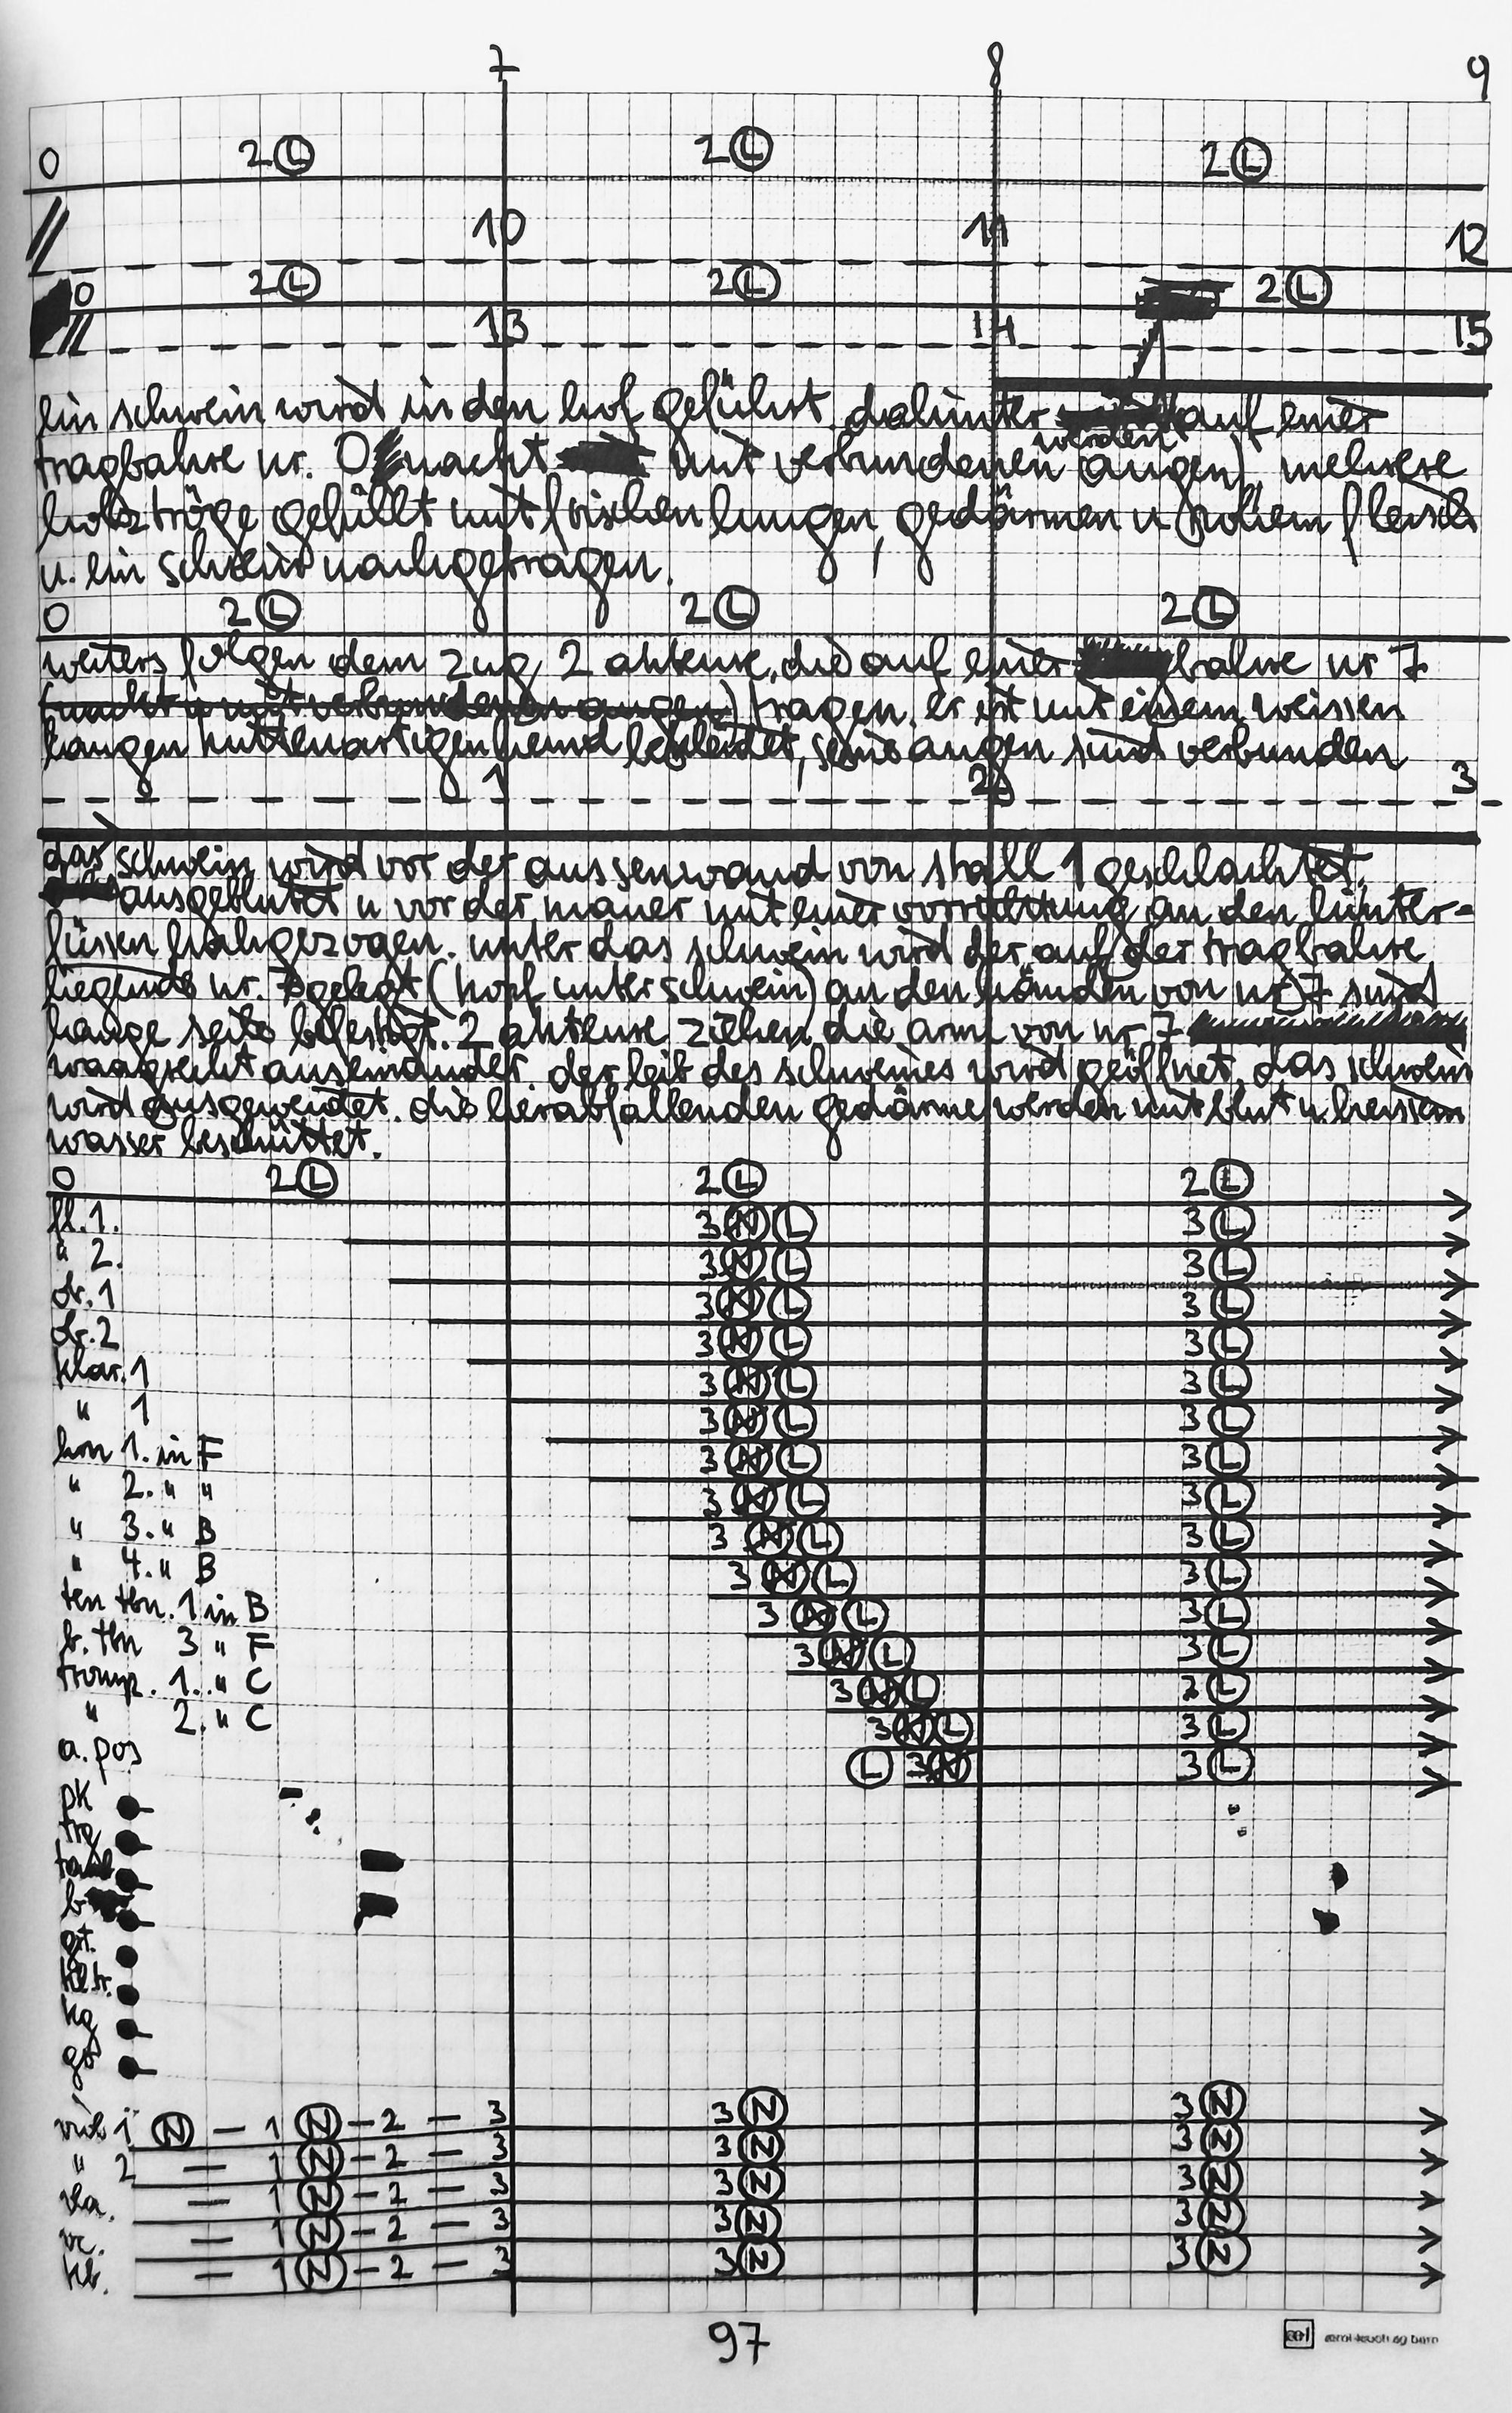 7 8 9
0 2 L 2 L 2 L
// 10 11 12
0 2 L 2 L 2 L
// 13 14 15
ein schwein wird in den hof geführt. dahinter auf einer
werden
tragbahre nr. 0 nackt mit verbundenen augen), mehrere
holztröge gefüllt mit frischen lungen, gedärmen u rohem fleisch
u. ein schwein nachgetragen.
0 2 L 2 L 2 L
weiters folgen dem zug 2 akteure, die auf einer bahre nr 7
(nackt u mit verbundenen augen) tragen. er ist mit einem weissen
langen kuttenartigen hemd bekleidet, seine augen sind verbunden
1 2 3
das schwein wird vor der aussenwand von stall 1 geschlachtet,
ausgeblutet u vor der mauer mit einer vorrichtung an den hinter-
füssen hochgezogen. unter das schwein wird der auf der tragbahre
liegende nr. 7 gelegt (kopf unter schwein) an den händen von nr 7 sind
lange seile befestigt. 2 akteure ziehen die arme von nr 7
waagrecht auseinander. der leib des schweines wird geöffnet, das schwein
wird ausgeweidet. die herabfallenden gedärme werden mit blut u. heissem
wasser beschüttet.
0 2 L 2 L 2 L
fl. 1. 3 N L 3 L
" 2. 3 N L 3 L
ob. 1 3 N L 3 L
ob. 2 3 N L 3 L
klar. 1 3 N L 3 L
" 1 3 N L 3 L
hrn 1. in F 3 N L 3 L
" 2. " " 3 N L 3 L
" 3. " B 3 N L 3 L
" 4. " B 3 N L 3 L
ten tbn. 1 in B 3 N L 3 L
b. tbn 3 " F 3 N L 3 L
tromp. 1. " C 3 N L 2 L
" 2. " C 3 N L 3 L
a. pos L 3 N 3 L
pk
trg
b
gt.
kltr.
kg
viol 1 N – 1 N – 2 – 3 3 N 3 N
" 2 – 1 N – 2 – 3 3 N 3 N
vla. – 1 N – 2 – 3 3 N 3 N
vc. – 1 N – 2 – 3 3 N 3 N
kb. – 1 N – 2 – 3 3 N 3 N
97